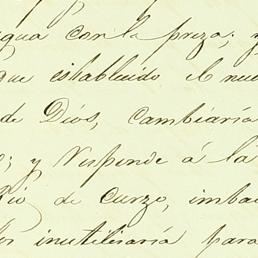 agua con la preza; y
que establecido el nue
de Dios, cambiaría
o; y Responde á la
Rio de curzo, imba
inutilisaría para